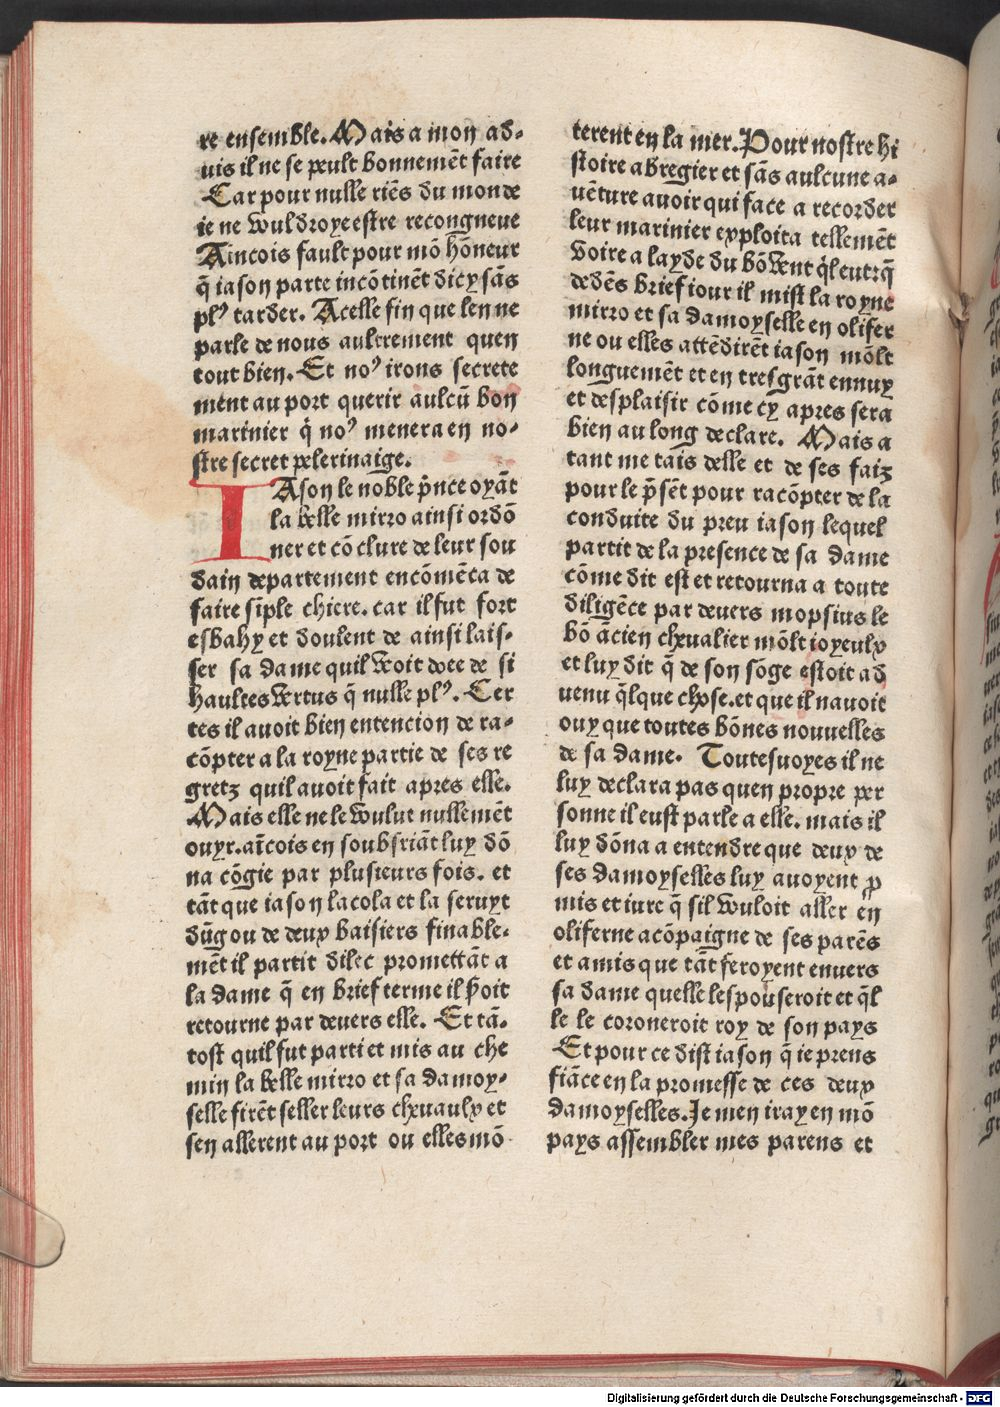 re ensemble. Mais a mon ad-
uis il ne se peult bonnemēt faire
Car pour nulle riēs du monde
ie ne vouldroye estre recongneue
Aincois fault pour mō hōneur
q̄ iason parte incōtinēt dicy sās
plꝰ tarder. Acelle fin que len ne
parle de nous aultrement quen
tout bien. Et noꝰ irons secrete
ment au port querir aulcū bon
marinier q̇ noꝰ menera en no-
stre secret pelerinaige.
IAson le noble p̄nce oyāt
la belle mirro ainsi ordō
ner et cōclure de leur sou
dain departement encōmēca de
faire sīple chiere. car il fut fort
esbahy et doulent de ainsi lais-
ser sa dame quil veoit doee de si
haultes vertus q̄ nulle plꝰ. Cer
tes il auoit bien entencion de ra-
cōpter a la royne partie de ses re
gretz quil auoit fait apres elle.
Mais elle ne le voulut nullemēt
ouyr. aīcois en soubsriāt luy dō
na cōgie par plusieurs fois. et
tāt que iason lacola et la seruyt
dūg ou de deux baisiers finable-
mēt il partit dilec promettāt a
la dame q̄ en brief terme il s̄oit
retourne par deuers elle. Et tā-
tost quil fut parti et mis au che
min la belle mirro et sa damoy-
selle firēt seller leurs cheuaulx et
sen allerent au port ou elles mō
terent en la mer. Pour nostre hi
stoire abregier et sās aulcune a-
uēture auoir qui face a recorder
leur marinier exploita tellemēt
voire a layde du bō vent q̇l eut q̄
dedēs brief iour il mist la royne
mirro et sa damoyselle en olifer
ne ou elles attēdirēt iason mōlt
longuemēt et en tresgrāt ennuy
et desplaisir cōme cy apres sera
bien au long declare. Mais a
tant me tais delle et de ses faiz
pour le p̄sēt pour racōpter de la
conduite du preu iason lequel
partit de la presence de sa dame
cōme dit est et retourna a toute
diligēce par deuers mopsius le
bō ācien cheualier mōlt ioyeulx
et luy dit q̄ de son sōge estoit ad
uenu q̄lque chose. et que il nauoit
ouy que toutes bōnes nouuelles
de sa dame. Toutesuoyes il ne
luy declara pas quen propre per
sonne il eust parle a elle. mais il
luy dōna a entendre que deux de
ses damoyselles luy auoyent ꝓ
mis et iure q̄ sil vouloit aller en
oliferne acōpaigne de ses parēs
et amis que tāt feroyent enuers
sa dame quelle lespouseroit et q̄l
le le coroneroit roy de son pays
Et pour ce dist iason q̄ ie prens
fiāce en la promesse de ces deux
damoyselles. Je men iray en mō
pays assembler mes parens et
Digitalisierung gefördert durch die Deutsche Forschungsgemeinschaft - DFG